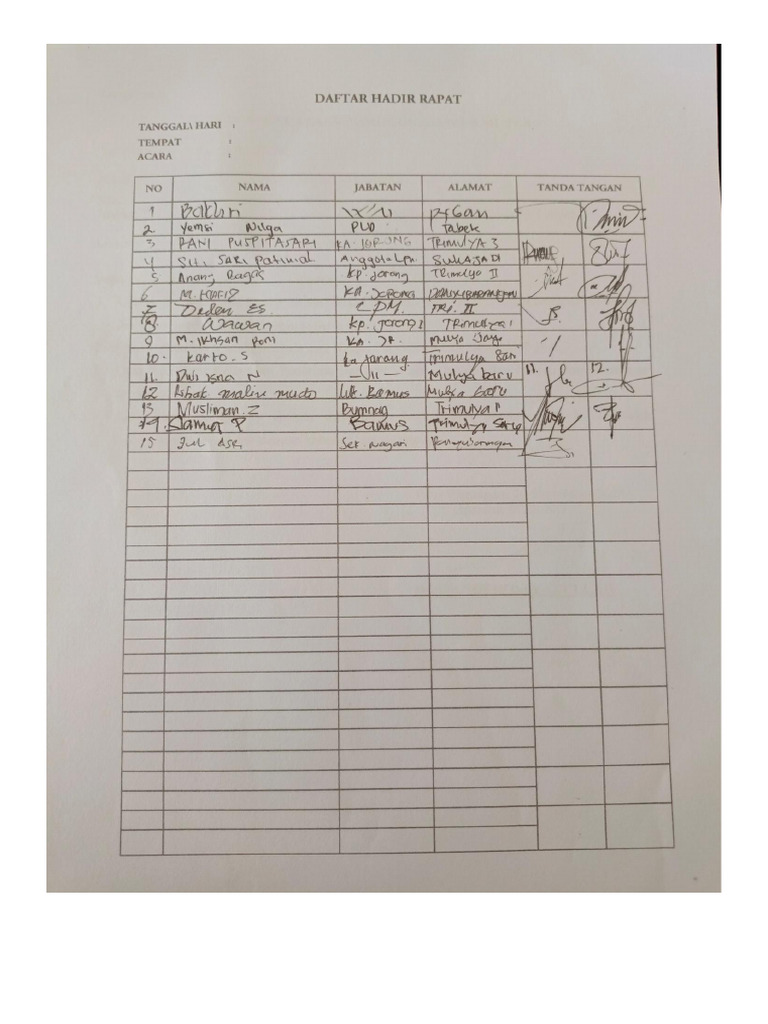 DAFTAR HADIR RAPAT
TANGGAL\ HARI :
TEMPAT :
ACARA :
NO NAMA JABATAN ALAMAT TANDA TANGAN
1 Bakhri
2 Yemsi Nilga PLD Tabek
3 RANI PUSPITASARI KA. JORONG TRIMULYA 3
4 Siti Sari Patimah Anggota SUKAJADI
5 Anang Bagas Kp. Jorong Trimulyo II
6 M. HAFIS KA. JORONG
7 Deden Es. LPM. TRI. II
8. Wawan Kp. Jorong Trimulya 1
9 M. Ikhsan Roni KA. JR. Mulya Jaya
10. Karto. S Ka Jorong Trimulya
11. Dwi Isna N — 11 — Mulya baru 11. 12.
12 malin mudo Bamus Mulya Baru
13 Musliman. Z Bumnag Trimulya
14. Slamet P Bamus Trimulyo Sari
15 Jul Asri Sek Nagari